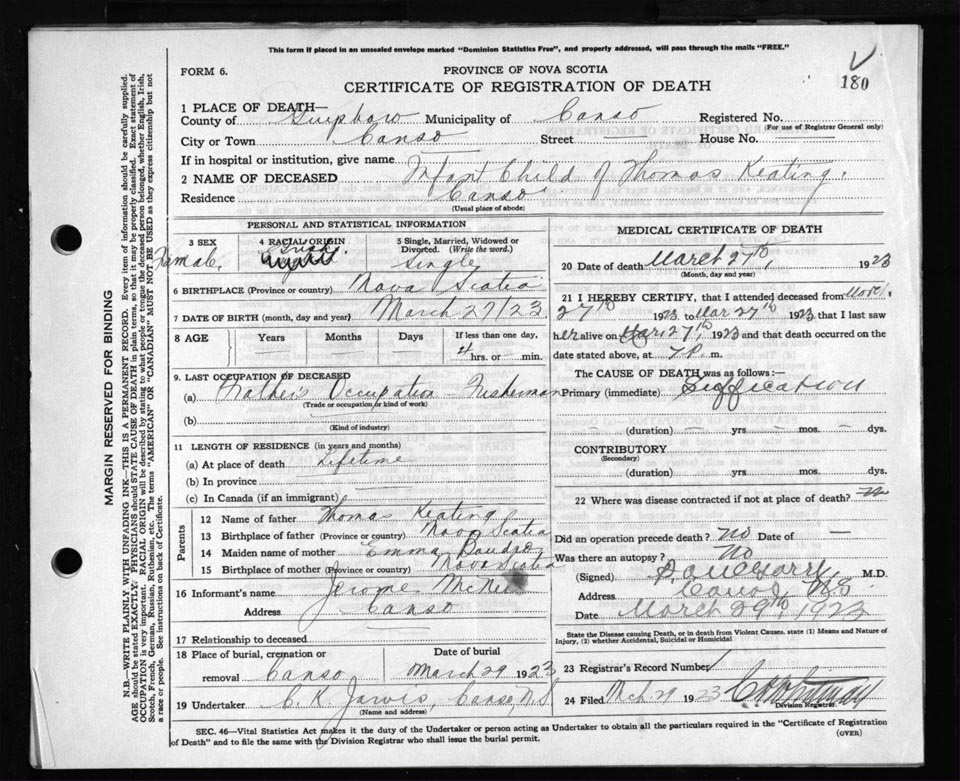 This form if placed in an unsealed envelope marked "Dominion Statistics Free", and properly addressed, will pass through the mails "FREE."
FORM 6.
PROVINCE OF NOVA SCOTIA
180
CERTIFICATE OF REGISTRATION OF DEATH
1 PLACE OF DEATH—
County of Guysboro Municipality of Canso Registered No.
(For use of Registrar General only)
City or Town Canso Street — House No. —
If in hospital or institution, give name
2 NAME OF DECEASED Infant Child of Thomas Keating.
Residence Canso
(Usual place of abode)
PERSONAL AND STATISTICAL INFORMATION
3 SEX
Female,
4 RACIAL ORIGIN
Irish
5 Single, Married, Widowed or Divorced. (Write the word.)
Single
6 BIRTHPLACE (Province or country) Nova Scotia
7 DATE OF BIRTH (month, day and year) March 27/23
8 AGE Years Months Days If less than one day,
— — — 4 hrs. or — min.
9. LAST OCCUPATION OF DECEASED
(a) Father's Occupation - Fisherman
(Trade or occupation or kind of work)
(b)
(Kind of industry)
11 LENGTH OF RESIDENCE (in years and months)
(a) At place of death Lifetime
(b) In province
(c) In Canada (if an immigrant)
Parents
12 Name of father Thomas Keating
13 Birthplace of father (Province or country) Nova Scotia
14 Maiden name of mother Emma
15 Birthplace of mother (Province or country) Nova Scotia
16 Informant's name Jerome
Address Canso
17 Relationship to deceased
18 Place of burial, cremation or removal Canso
Date of burial
March 29 1923
19 Undertaker C. K. Jarvis, Canso, N.S
(Name and address)
MEDICAL CERTIFICATE OF DEATH
20 Date of death March 27th, 1923
(Month, day and year)
21 I HEREBY CERTIFY, that I attended deceased from March
27th 1923 to Mar 27th 1923 that I last saw
her alive on Mar 27th 1923 and that death occurred on the
date stated above, at 7 P. m.
The CAUSE OF DEATH was as follows:—
Primary (immediate) Suffication
— (duration) — yrs — mos. — dys.
CONTRIBUTORY
(Secondary)
(duration) yrs. mos. dys.
22 Where was disease contracted if not at place of death?
Did an operation precede death? no Date of —
Was there an autopsy? No
(Signed) M.D.
Address Canso, N.S
Date March 29th, 1923
State the Disease causing Death, or in death from Violent Causes, state (1) Means and Nature of Injury, (2) whether Accidental, Suicidal or Homicidal
23 Registrar's Record Number
24 Filed Mch 29 1923
Division Registrar
SEC. 46—Vital Statistics Act makes it the duty of the Undertaker or person acting as Undertaker to obtain all the particulars required in the "Certificate of Registration of Death" and to file the same with the Division Registrar who shall issue the burial permit.
(OVER)
MARGIN RESERVED FOR BINDING
N.B.—WRITE PLAINLY WITH UNFADING INK—THIS IS A PERMANENT RECORD. Every item of information should be carefully supplied.
AGE should be stated EXACTLY. PHYSICIANS should STATE CAUSE OF DEATH in plain terms, so that it may be properly classified. Exact statement of
OCCUPATION is very important. RACIAL ORIGIN will be described by stating to what people or tongue the deceased person belonged, whether English, Irish,
Scotch, French, German, Russian, Ruthenian, etc. The terms "AMERICAN" or "CANADIAN" MUST NOT BE USED as they express citizenship but not
a race or people. See instructions on back of Certificate.